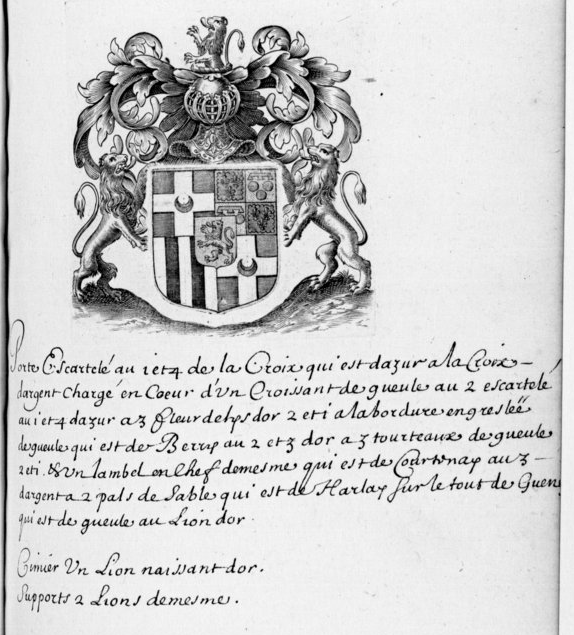 Porte Escartelé au 1 et 4 de la Croix qui est dazur a la Croix
dargent Chargé en Coeur d'un Croissant de gueule au 2 escartelé
au 1 et 4 dazur a 3 fleur de lys dor 2 et 1 a la bordure engreslëë
de gueule qui est de Berry au 2 et 3 dor a 3 tourteaux de gueule
2 et 1. & un lambel en Chef demesme qui est de Courtenay au 3
dargent a 2 pals de Sable qui est de Harlay sur le tout de Guen
qui est de gueule au Lion dor
Cimier Un Lion naissant dor.
Supports 2 Lions demesme.